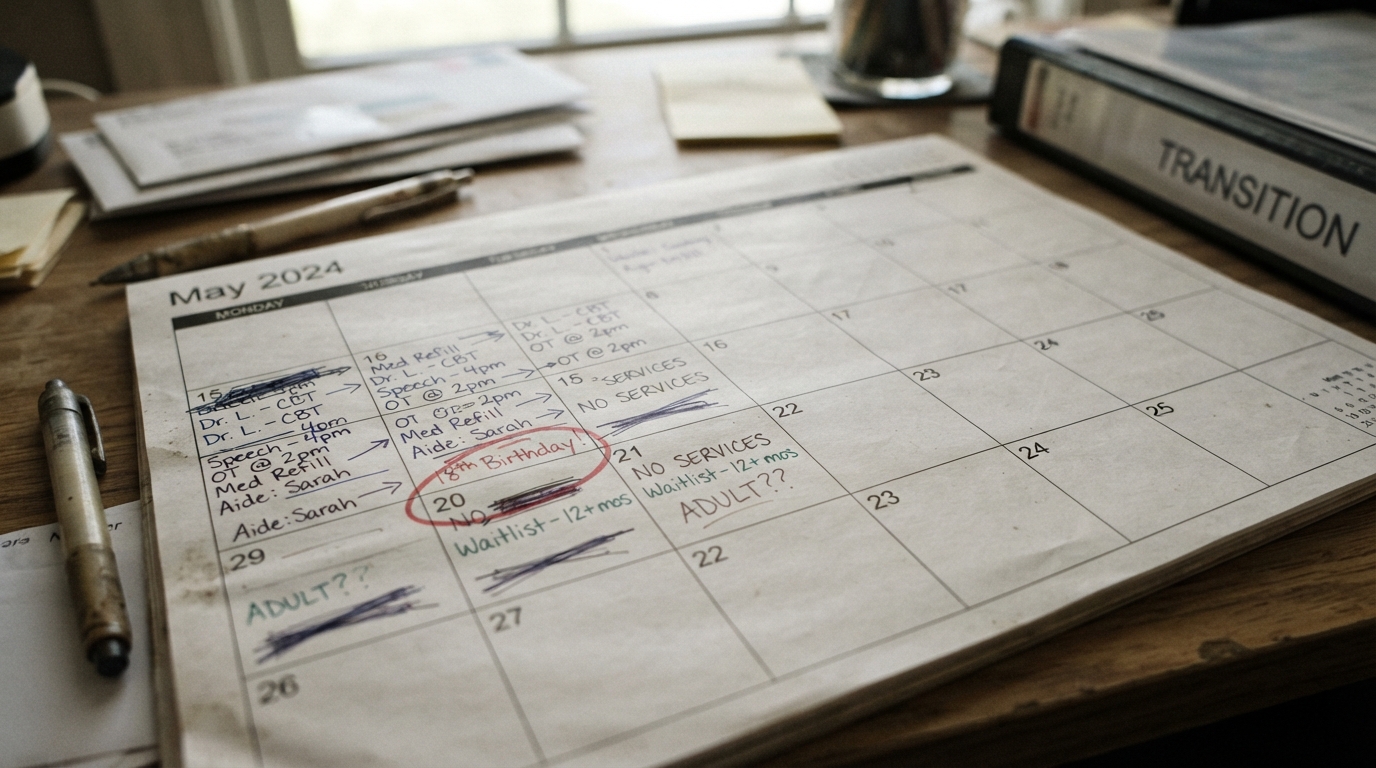 TRANSITION
May 2024
MONDAY
16
Med Refill
Dr. L. - CBT
Speech - 4pm
OT @ 2pm
Dr. L. - CBT
Dr. L. - CBT
OT @ 2pm
OT @ 2pm
8
9
10
17
18
15
Dr. L. - CBT
Dr. L. - CBT
Speech - 4pm
OT @ 2pm
Med Refill
Aide: Sarah
Aide: Sarah
OT @ 2pm
Med Refill
Aide: Sarah
15
SERVICES
NO SERVICES
16
17
24
25
18th Birthday
20
NO
Waitlist - 12+ mos
21
NO SERVICES
Waitlist - 12+ mos
ADULT??
22
23
24
25
29
ADULT??
27
22
23
26